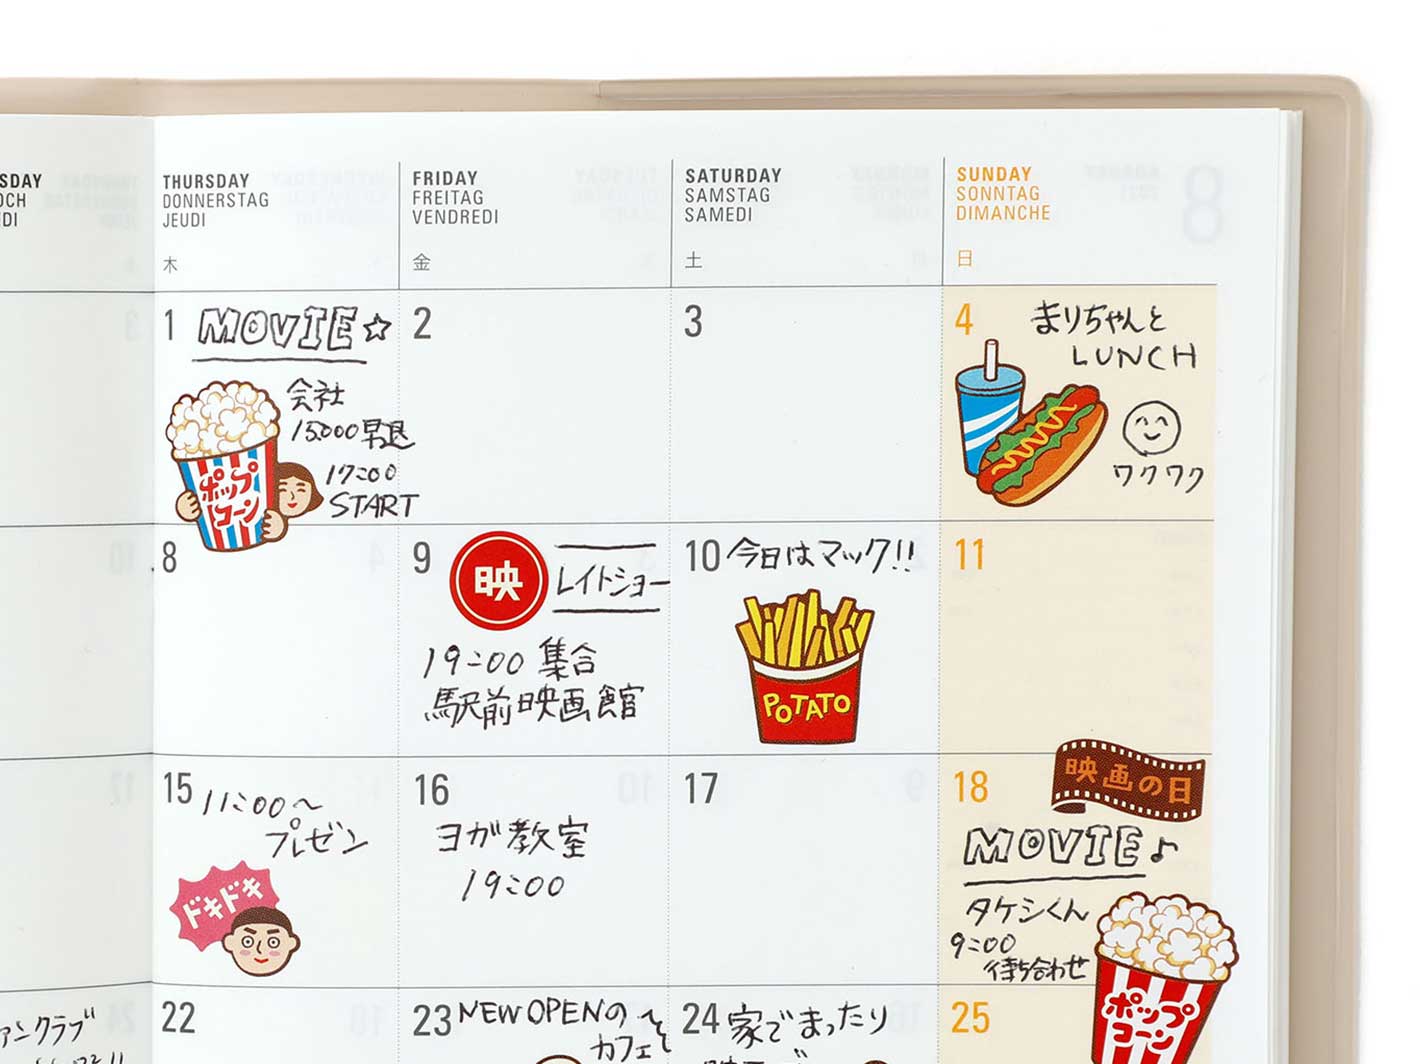 SDAY
OCH
DI
THURSDAY
DONNERSTAG
JEUDI
木
FRIDAY
FREITAG
VENDREDI
金
SATURDAY
SAMSTAG
SAMEDI
土
SUNDAY
SONNTAG
DIMANCHE
日
8
1 MOVIE☆
会社
15:00早退
17:00
START
ポップ
コーン
2
3
4
まりちゃんと
LUNCH
ワクワク
8
9
映
レイトショー
19:00 集合
駅前映画館
10 今日はマック!!
POTATO
11
15 11:00〜
プレゼン
ドキドキ
16
ヨガ教室
19:00
17
18
映画の日
MOVIE♪
タケシくん
9:00
待ち合わせ
ポップ
コーン
ァンクラブ
22
23 NEW OPENの
カフェへ
24 家でまったり
25